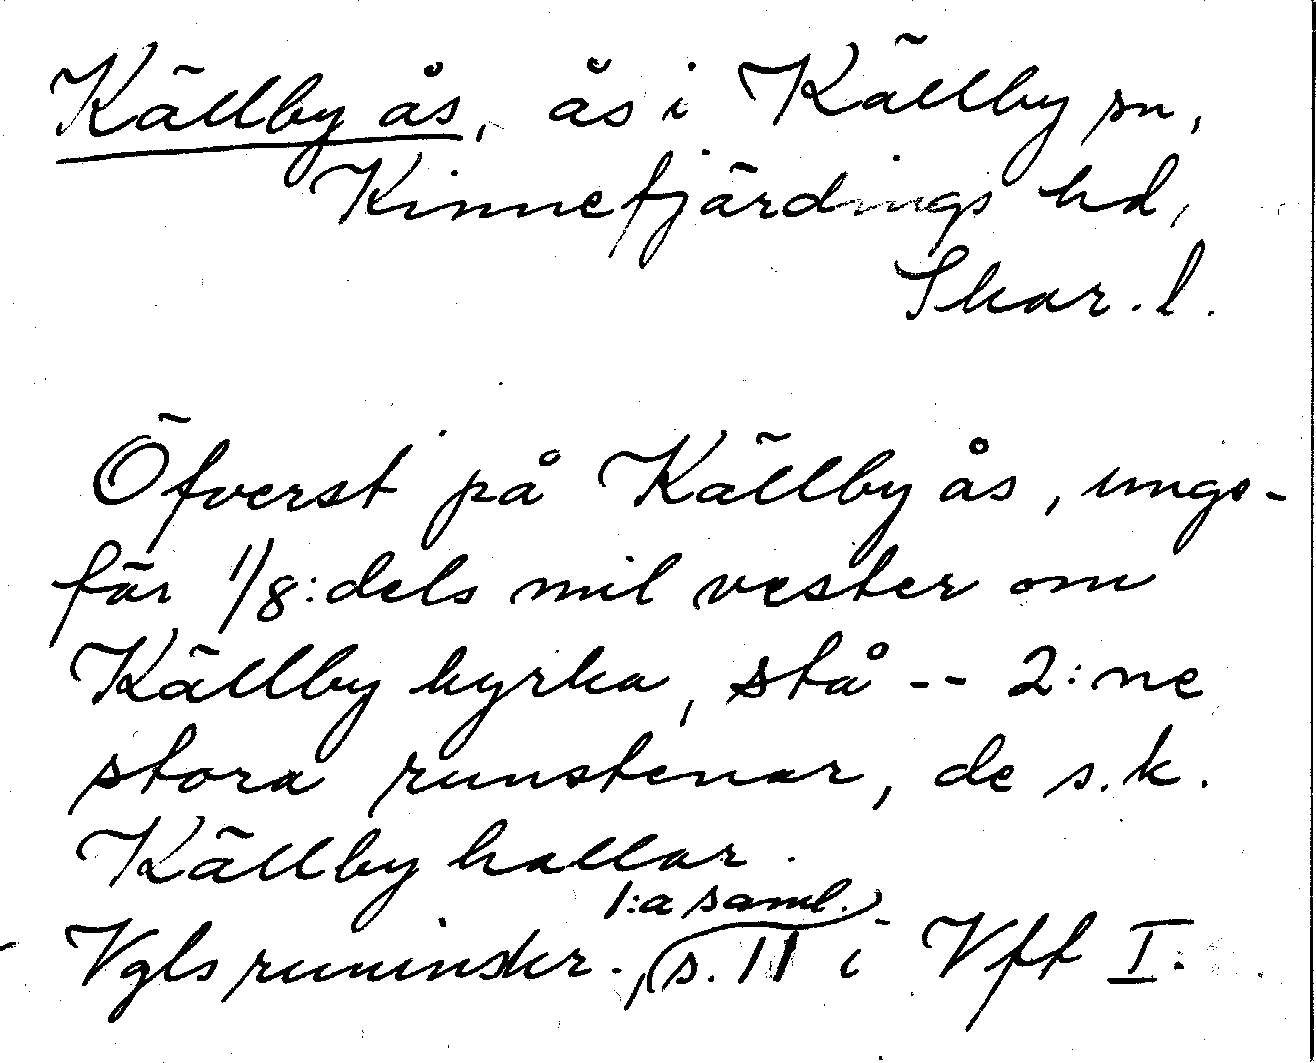 Källby ås, ås i Källby sn,
Kinnefjärdings hd,
Skar. l.
Öfverst på Källby ås, unge-
fär 1/8:dels mil vester om
Källby kyrka, stå -- 2:ne
stora runstenar, de s.k.
Källby hallar.
1:a saml.
Vgls runinskr., s. 11 i Vff I.